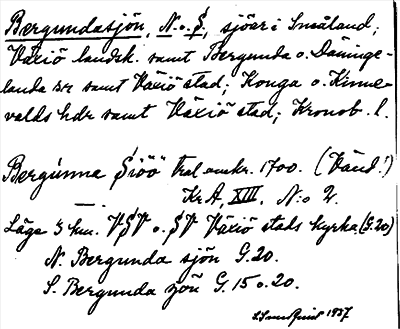 Bergundasjön, N. o. S., sjöar i Småland;
Växiö landsk. samt Bergunda o. Dänninge-
landa snr samt Växiö stad; Konga o. Kinne-
valds hdr samt Växiö stad; Kronob. l.
Bergunna Siöö tral omkr. 1700. (Vänd!)
— KrA, XIII. N:o 2.
Läge 3 km. VSV o. SV Växiö stads kyrka. (G.20)
N. Bergunda sjön G. 20.
S. Bergunda sjön G. 15 o. 20.
1937